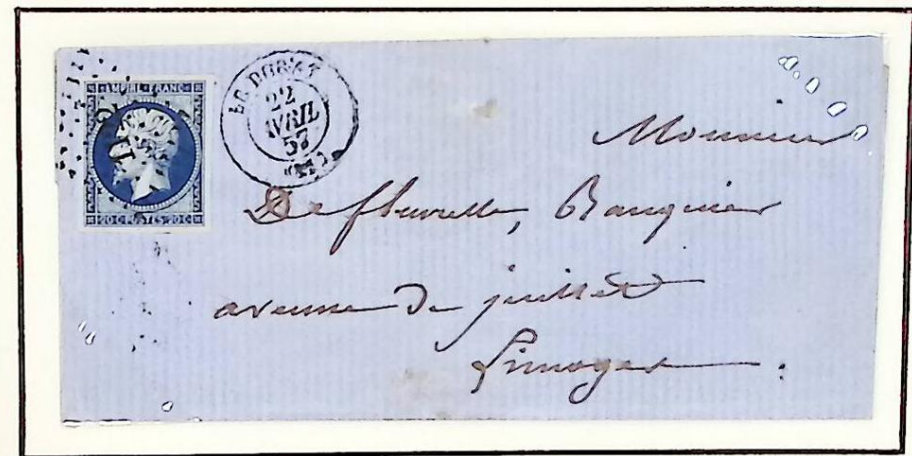 EMPIRE FRANC
20 C POSTES 20 C
LE DORAT
22
AVRIL
57
Monsieur
Defleurelle, Banquier
avenue de juillet
Limoges.